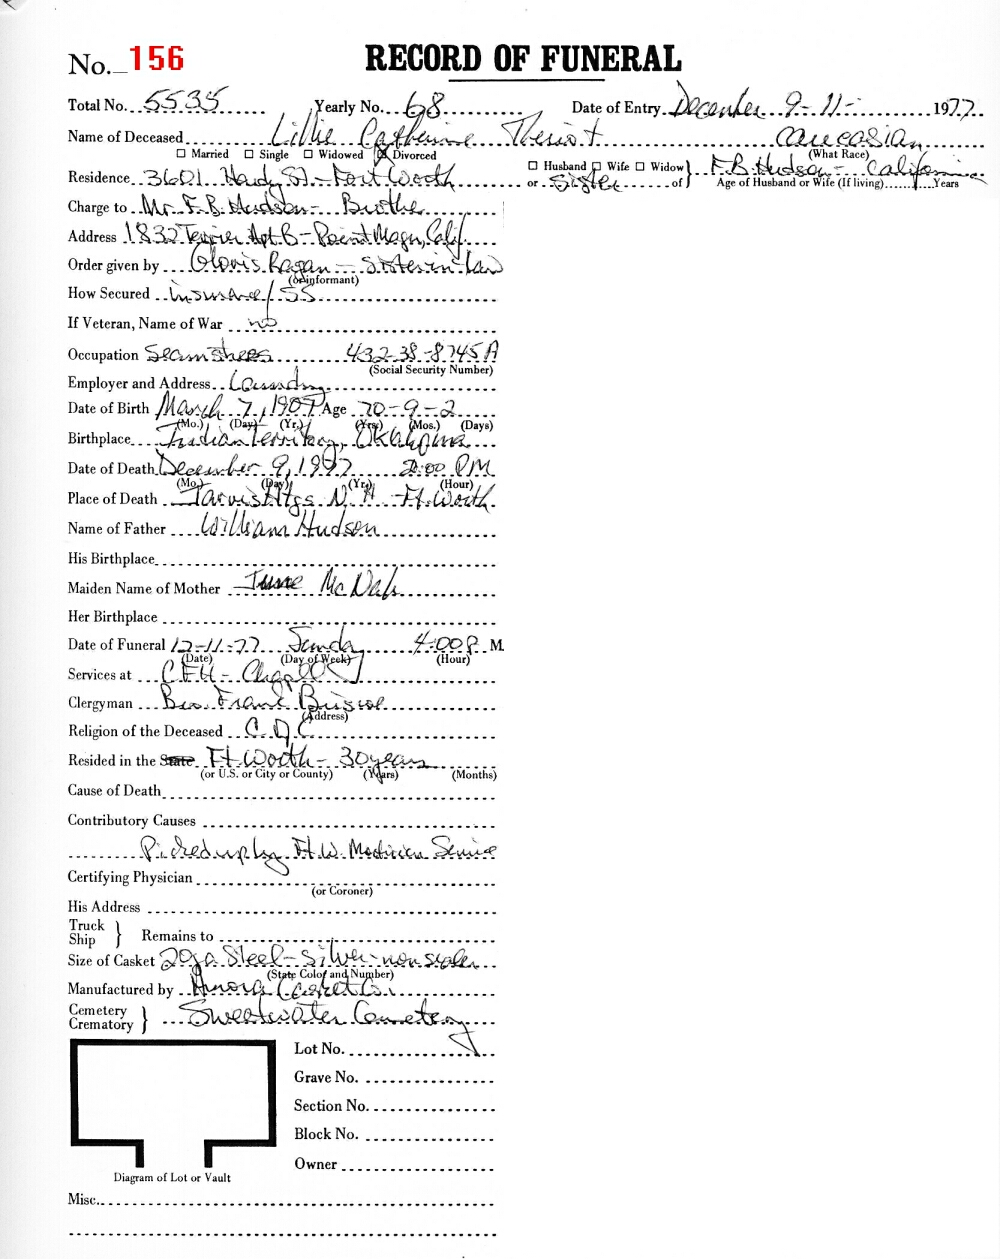 No. 156 RECORD OF FUNERAL
Total No. 5535 Yearly No. 68 Date of Entry December 9-11- 1977
Name of Deceased Lillie Catherine Theriot Caucasian
☐ Married ☐ Single ☐ Widowed ☒ Divorced (What Race)
☐ Husband ☐ Wife ☐ Widow } F.B. Hudson - California
Residence 3601 Hardy St - Fort Worth or Sister of Age of Husband or Wife (If living) Years
Charge to Mr. F.B. Hudson - Brother
Address 1832 Apt B - Point Magu, Calif.
Order given by Clovis Ragan - Sister in Law
(or informant)
How Secured insurance/SS
If Veteran, Name of War no
Occupation Seamstress 432-38-8745A
(Social Security Number)
Employer and Address Laundry
Date of Birth March 7, 1907 Age 70-9-2
(Mo.) (Day) (Yr.) (Yrs.) (Mos.) (Days)
Birthplace Indian Territory, Oklahoma
Date of Death December 9, 1977 2:00 PM
(Mo.) (Day) (Yr.) (Hour)
Place of Death Jarvis Htgs N.H. Ft. Worth
Name of Father William Hudson
His Birthplace
Maiden Name of Mother June McNab
Her Birthplace
Date of Funeral 12-11-77 Sunday 4:00 P. M
(Date) (Day of Week) (Hour)
Services at CFH - Chapel
Clergyman Bro. Frank Briscoe
(Address)
Religion of the Deceased C.O.C
Resided in the State Ft Worth - 30 years
(or U.S. or City or County) (Years) (Months)
Cause of Death
Contributory Causes
Picked up by Ft. W. Mortician Service
Certifying Physician
(or Coroner)
His Address
Truck
Ship } Remains to
Size of Casket 20ga Steel - Silver - non sealer
(State Color and Number)
Manufactured by Casket Co.
Cemetery
Crematory } Sweetwater Cemetery
Lot No.
Grave No.
Section No.
Block No.
Owner
Diagram of Lot or Vault
Misc.